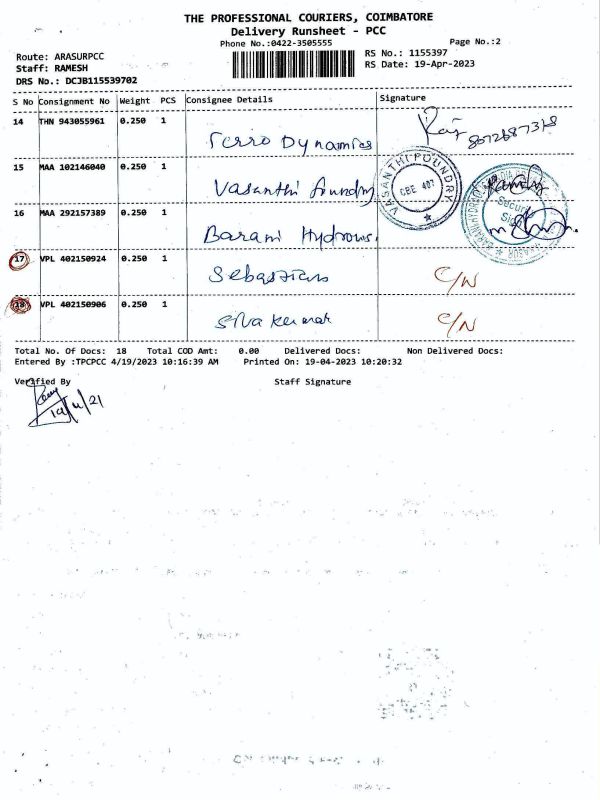 THE PROFESSIONAL COURIERS, COIMBATORE
Delivery Runsheet - PCC
Phone No.:0422-3505555 Page No.:2
Route: ARASURPCC RS No.: 1155397
Staff: RAMESH RS Date: 19-Apr-2023
DRS No.: DCJB115539702
S No Consignment No Weight PCS Consignee Details Signature
14 THN 943055961 0.250 1
Ferro Dynamics Raj
15 MAA 102146040 0.250 1
Vasanthi foundry VASANTHI FOUNDRY CBE 407
16 MAA 292157389 0.250 1
Barani Hydraus.
17 VPL 402150924 0.250 1
Sebastians C/N
18 VPL 402150906 0.250 1
Siva kumar C/N
Total No. Of Docs: 18 Total COD Amt: 0.00 Delivered Docs: Non Delivered Docs:
Entered By :TPCPCC 4/19/2023 10:16:39 AM Printed On: 19-04-2023 10:20:32
Verified By Staff Signature